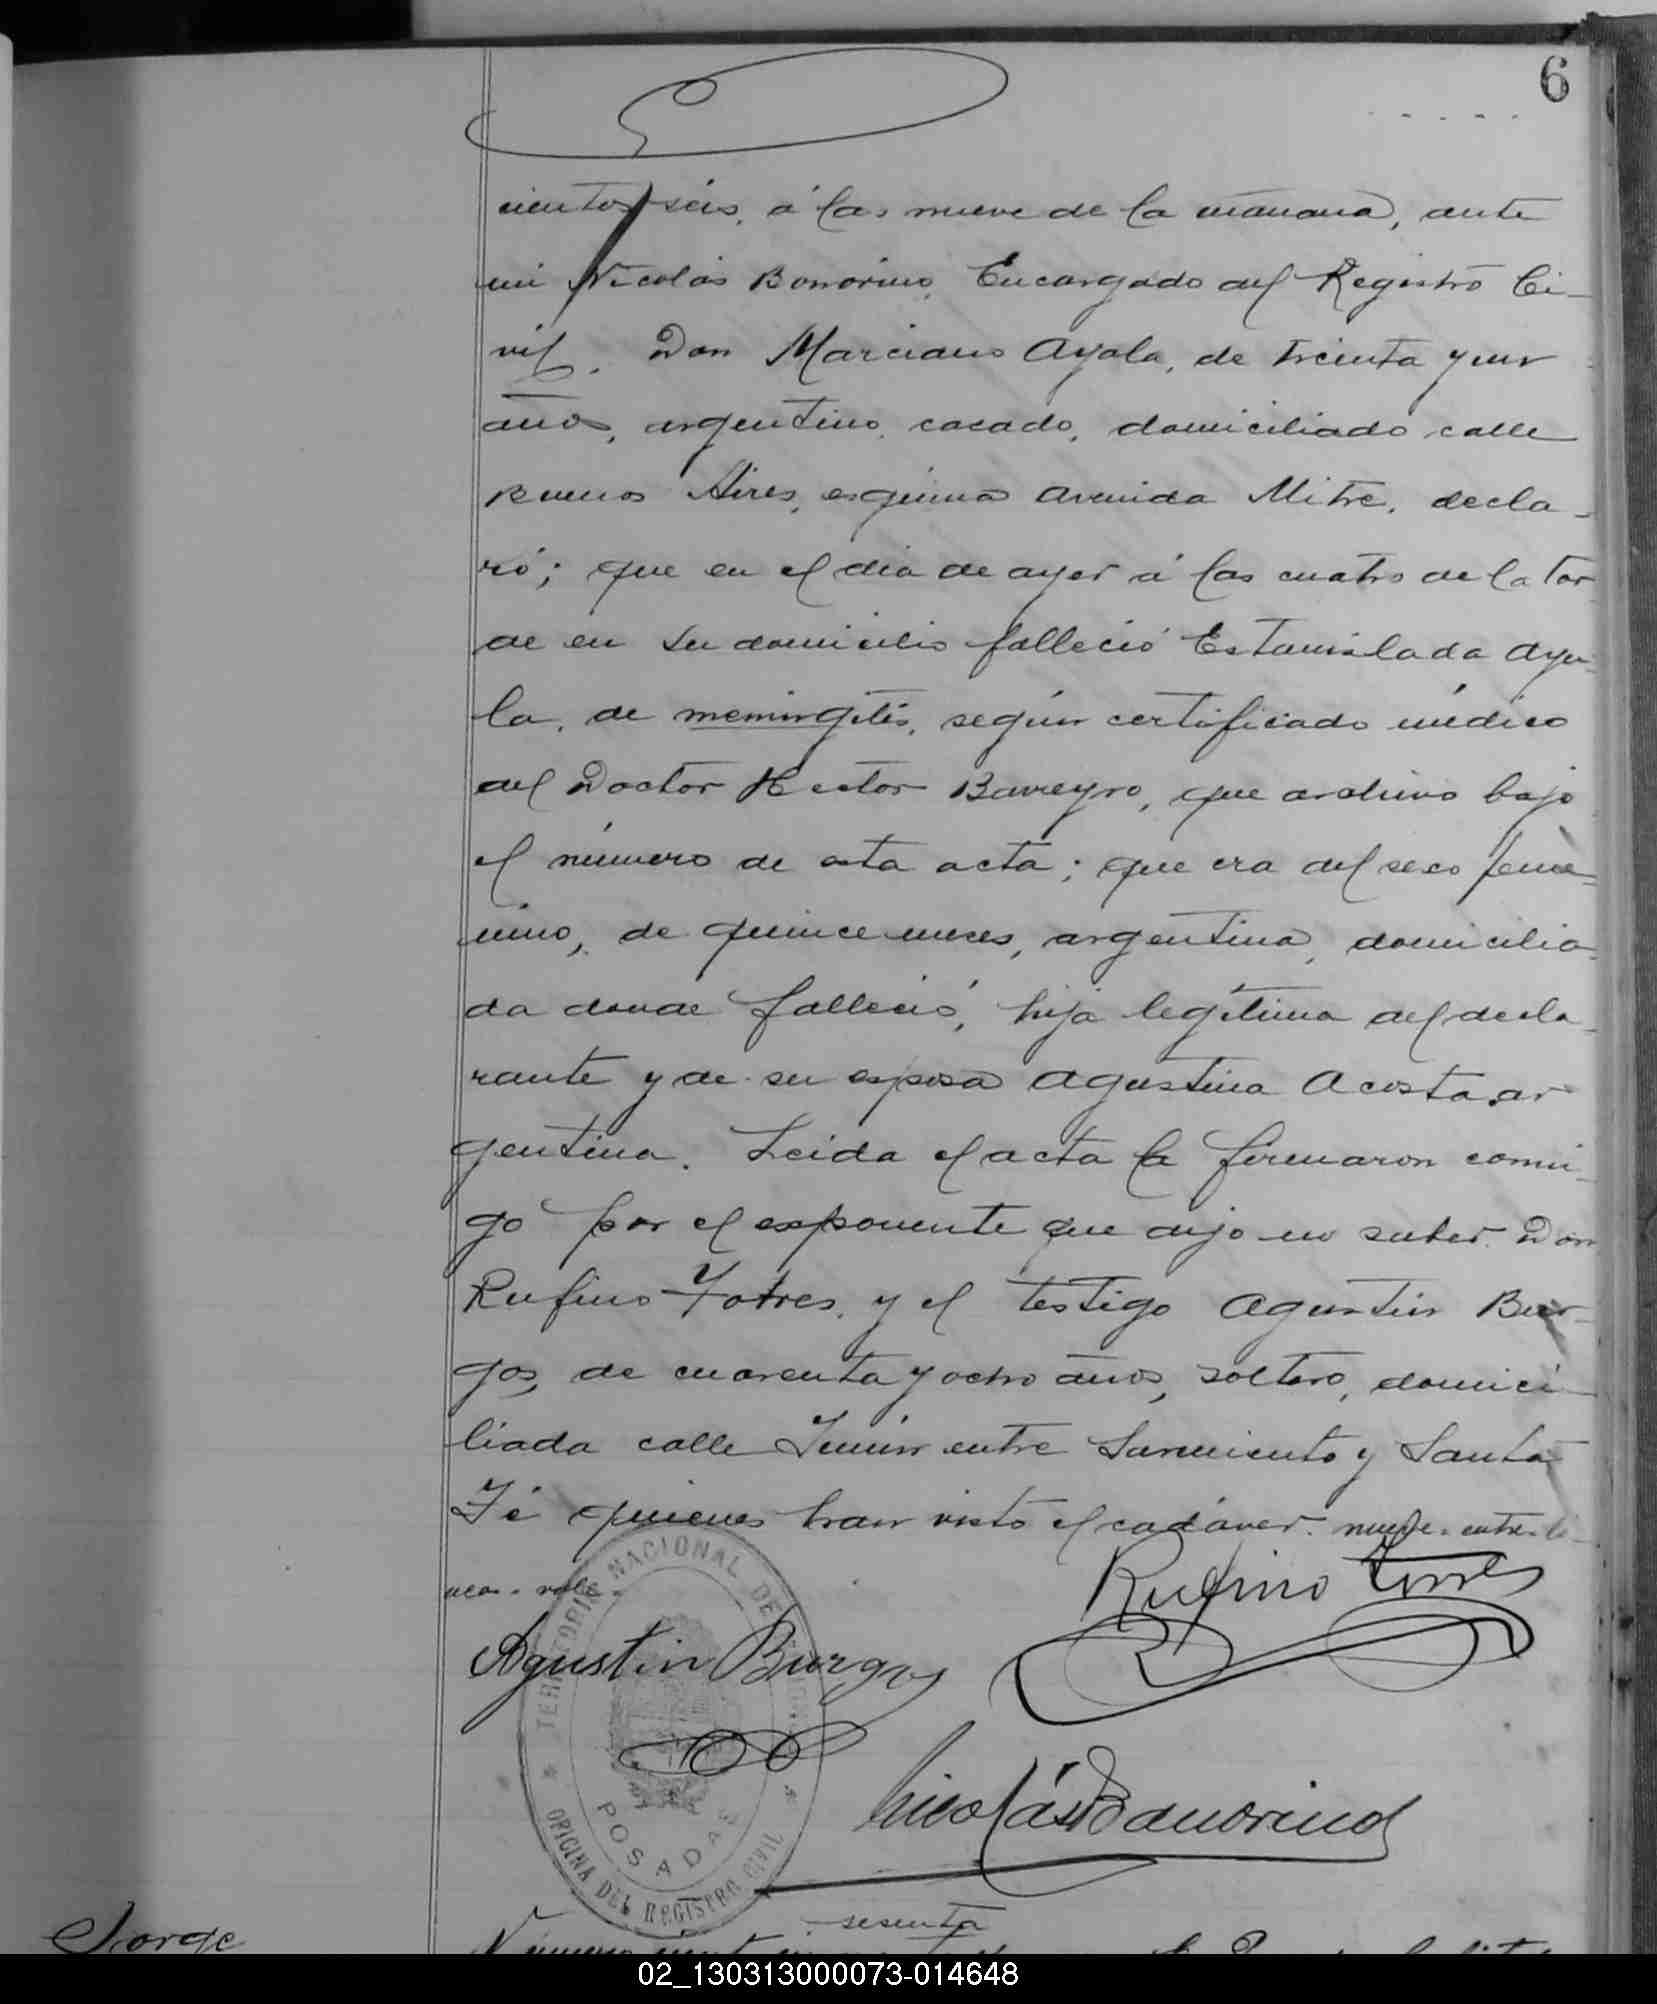 6
cientos seis, á las nueve de la mañana, ante
mi Nicolás Bonorino, Encargado del Registro Ci-
vil. Don Marciano Ayala, de treinta y un
años, argentino, casado, domiciliado calle
Buenos Aires, esquina Avenida Mitre, decla-
ró; que en el dia de ayer á las cuatro de la tar
de en su domicilio falleció Estanislada Aya-
la, de meningitis, segun certificado médico
del Doctor Hector Barreyro, que archivo bajo
el número de esta acta; que era del sexo feme-
nino, de quince meses, argentina, domicilia-
da donde falleció, hija legítima del decla-
rante y de su esposa Agustina Acosta, ar
gentina. Leida el acta la firmaron conmi-
go por el exponente que dijo no saber Don
Rufino Torres, y el testigo Agustin Bur-
gos, de cuarenta y ocho años, soltero, domici-
liada calle Junin entre Sarmiento y Santa
Fé quienes han visto el cadáver. entre li-
neas. vale.
Rufino Torres
Agustin Burgos
Nicolás Bonorino
TERRITORIO NACIONAL DE MISIONES
POSADAS
OFICINA DEL REGISTRO CIVIL
sesenta
Jorge
Número
02_130313000073-014648